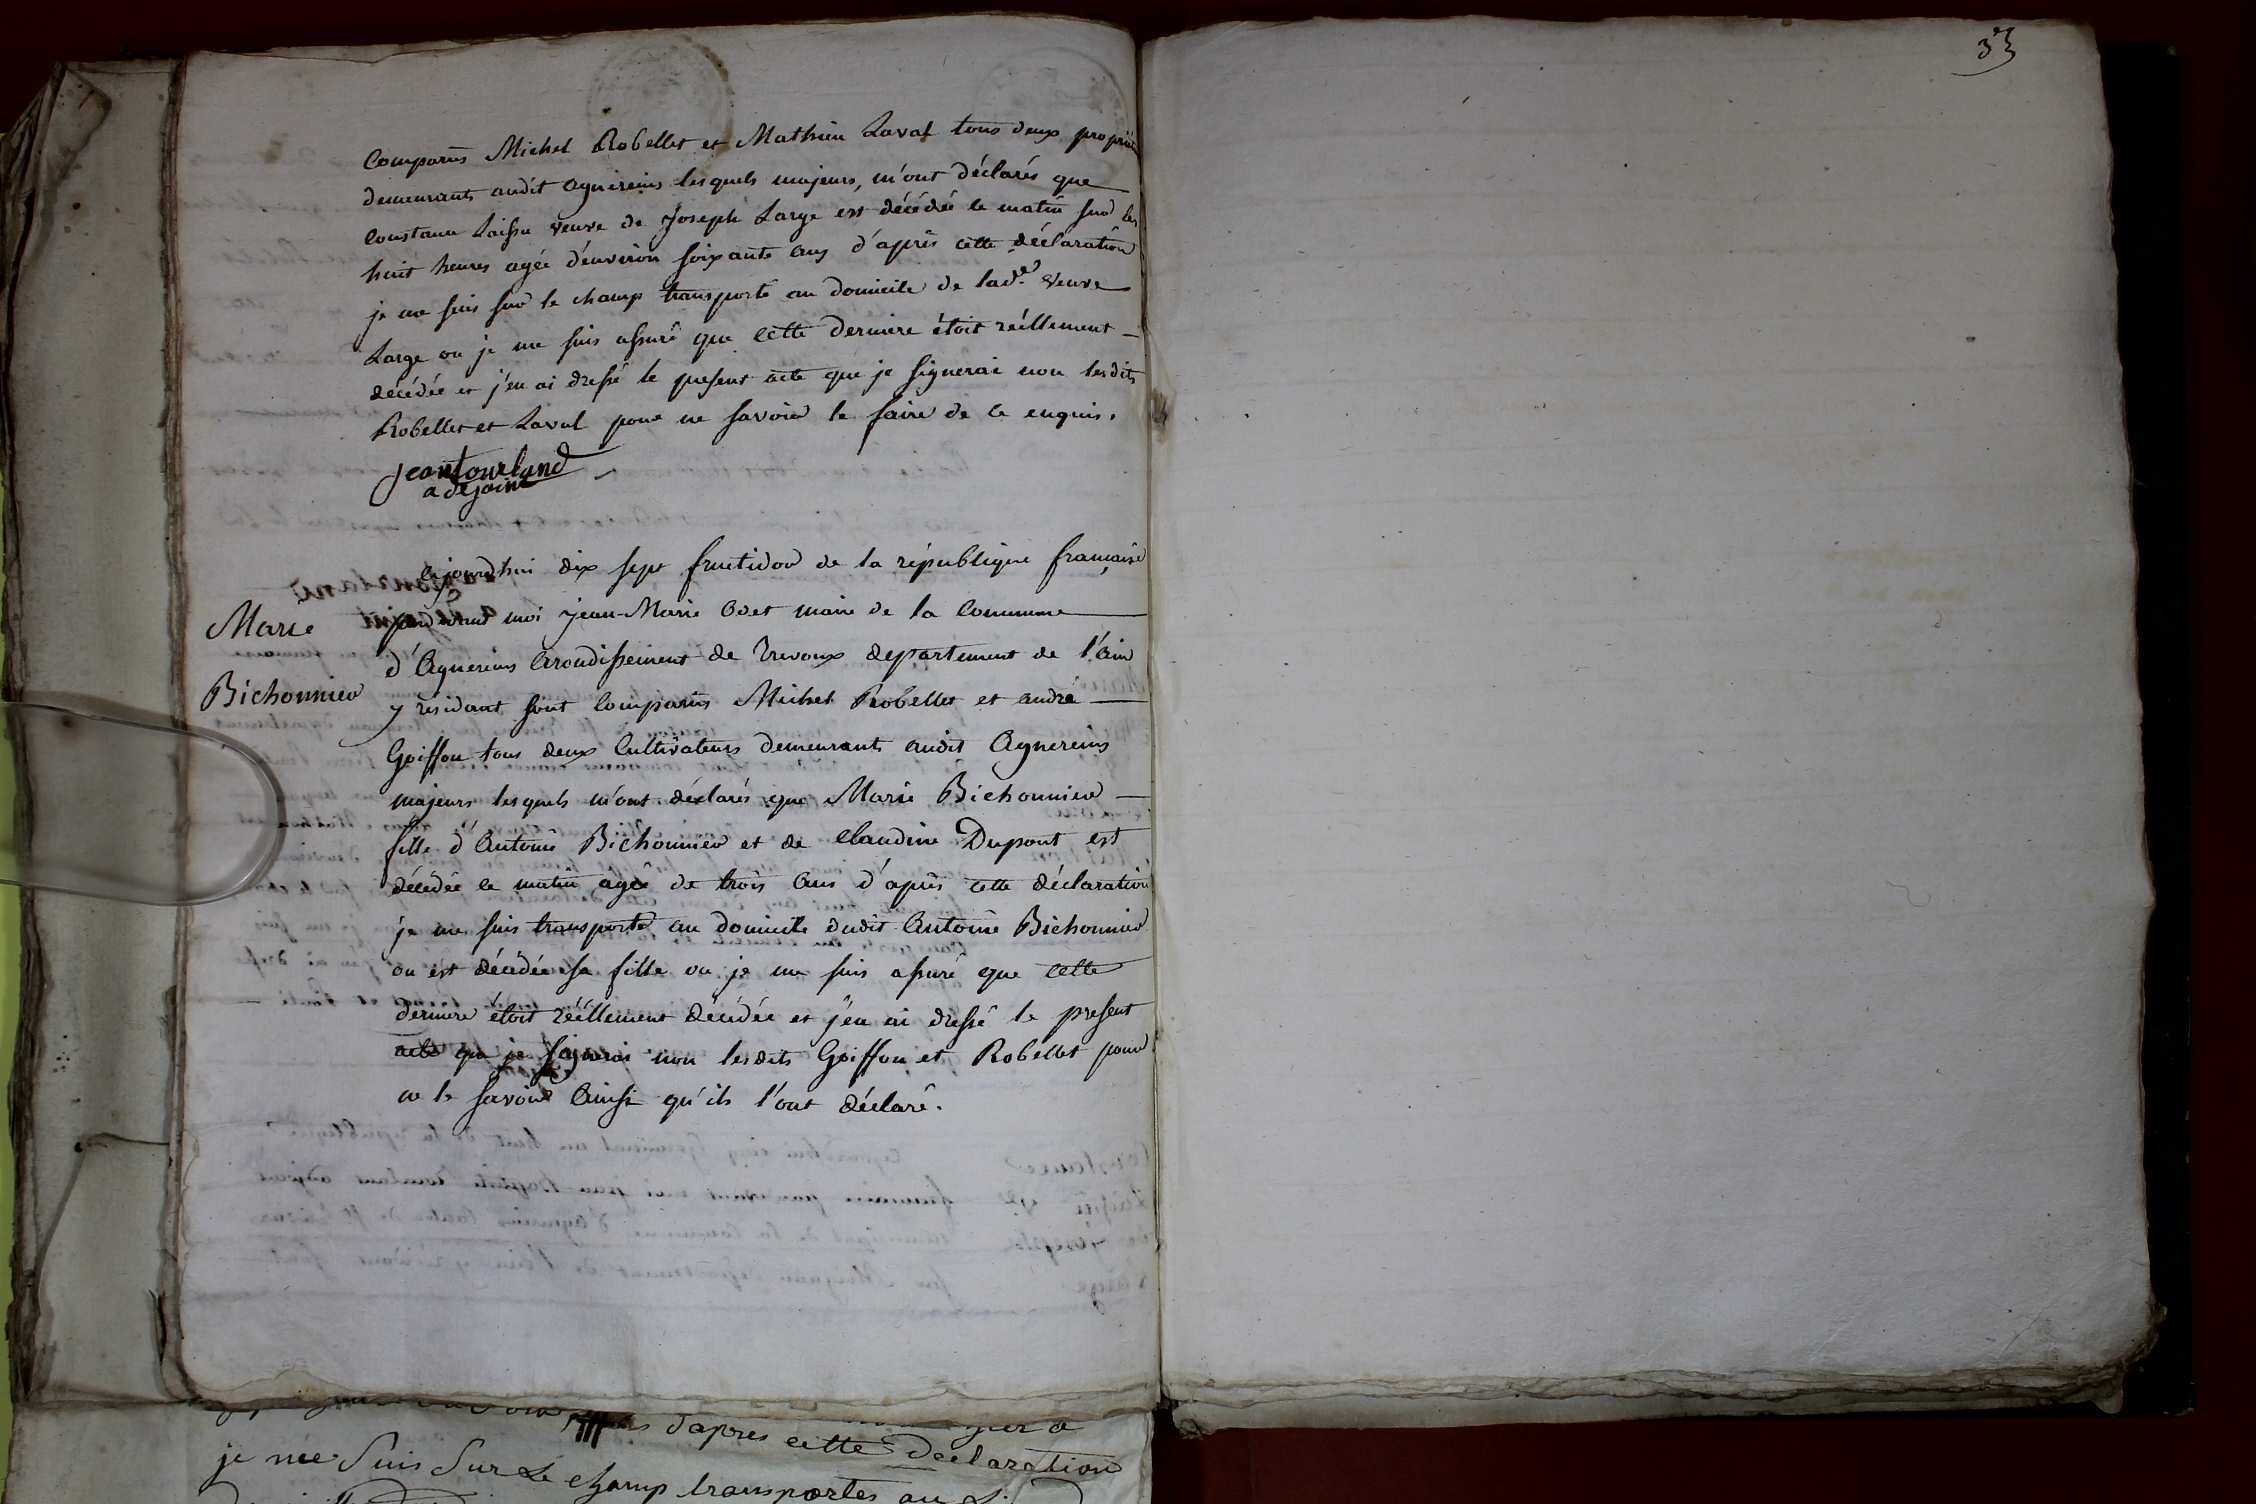 33
comparus Michel Robellet et Mathieu Laval tous deux propriét
demeurants audit agnireins lesquels majeurs, m'ont déclarés que
Constance Laissu veuve de Joseph Large est décédée ce matin sur les
huit heures agée d'environ soixante ans d'après cette déclaration
je me suis sur le champ transporté au domicile de lade. veuve
Large ou je me suis assuré que cette derniere étoit réellement —
décédée et j'en ai dressé le present acte que je signerai non lesdits
Robellet et Laval pour ne savoir le faire de ce enquis.
jean tourland
adejoint
Cejourdhui dix sept fructidor de la république française
Marie
pardevant moi jean-Marie Odet maire de la Commune
d'Agnereins arondissement de Trevoux departement de l'ain
Bichonnier
y résidant sont Comparus Michel Robellet et andré —
Goiffon tous deux Cultivateurs demeurants audit Agnereins
majeurs lesquels m'ont déclarés que Marie Bichonnier —
fille d'Antoine Bichonnier et de Claudine Dupont est
décédée ce matin agée de trois ans d'après cette déclaration
je me suis transporté au domicile dudit Antoine Bichonnier
ou est décédée sa fille ou je me suis assuré que cette
derniere étoit réellement décédée et j'en ai dressé le present
acte que je signerai non lesdits Goiffon et Robellet pour
ne le savoir Ainsi qu'ils l'ont déclaré.
d'apres cette Declaration
je me Suis Sur Le champ transportes au